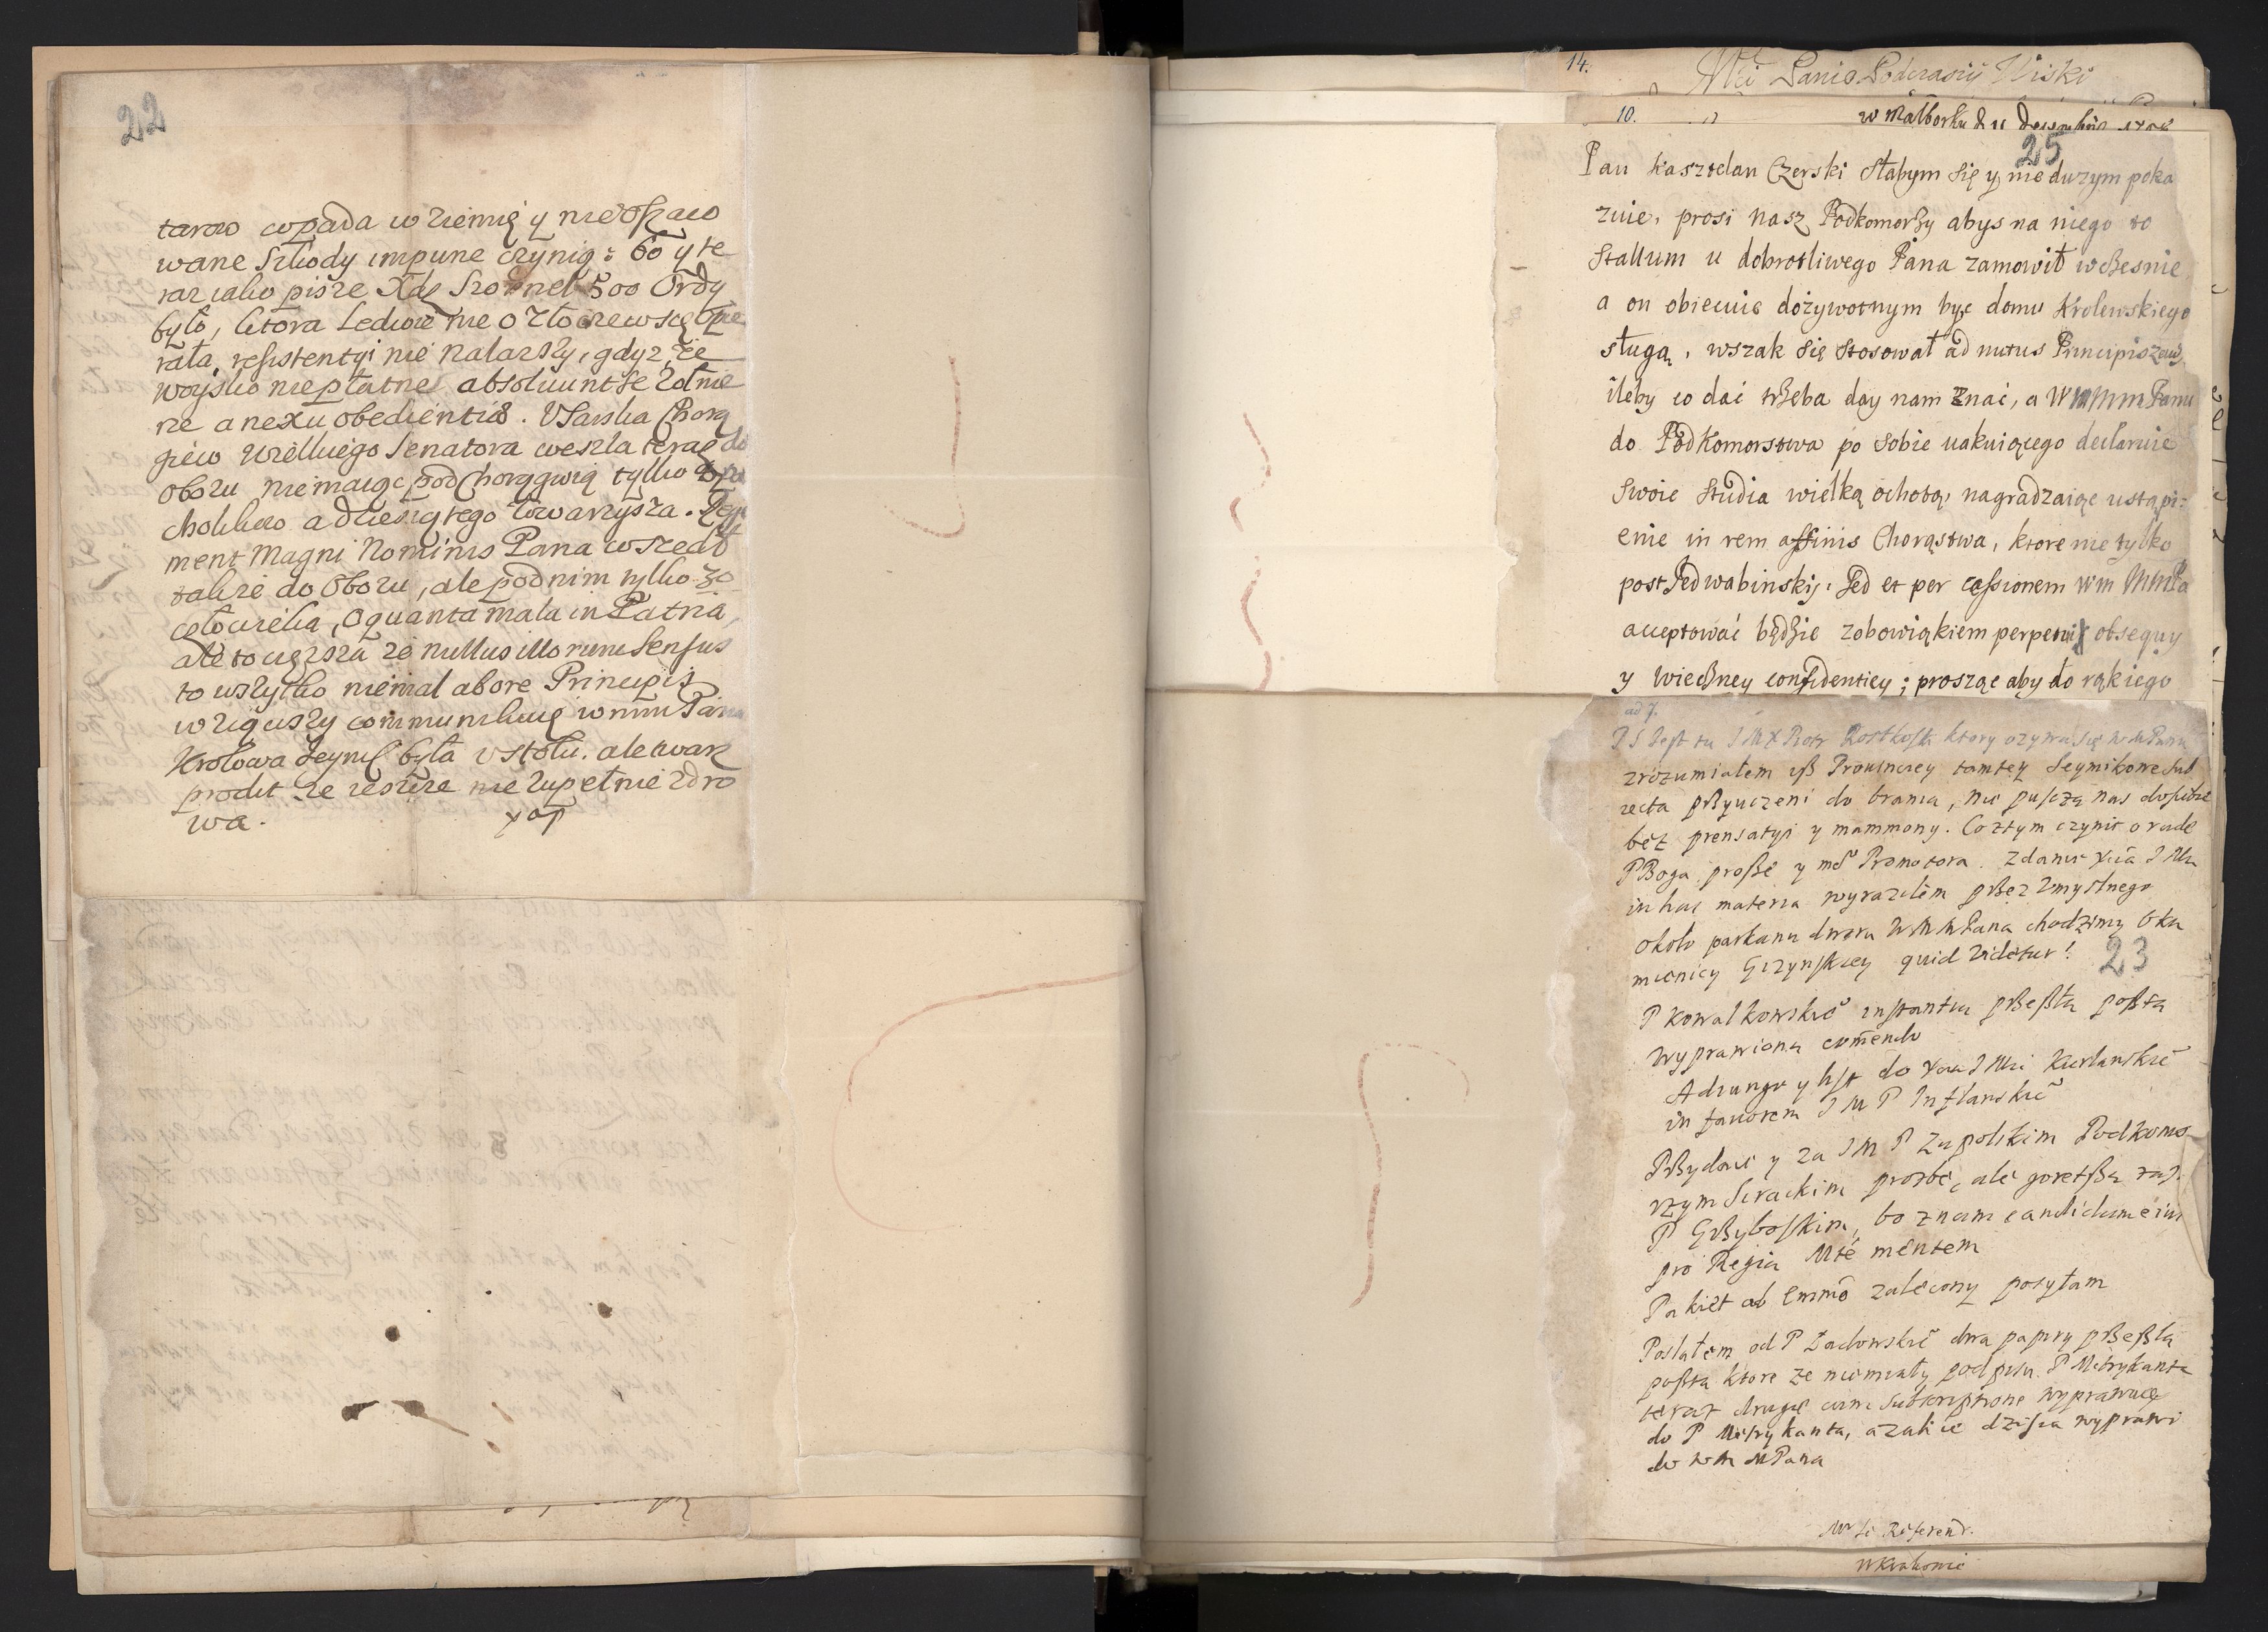 22
tarow wpada w ziemię y nieoszaco
wane szkody impune czynią: bo y te
raz iako pisze Xdz 500 Ordy
było, ktora Ledwie nie o Złoczew się
rała, resistentyi nie nalazszy, gdyz ze
woysko niepłatne absoluunt se Zołnie
rze a nexu obedientiæ. Usarska Chorą
giew wielkiego Senatora weszla teraz do
obozu niemaiąc pod Chorągwią tylko
cholikow a dziesiątego towarzysza. Regi
ment Magni Nominis Pana wszedł
takze do Obozu, ale pod nim tylko 30
człowieka, O quanta mala in Patria,
ale to cięższa ze nullus illorum sensus
to wszytko niemal ab ore Principis
wziąwszy communikuię wmm Panu
Krolowa Jeymć była u stołu. ale twarz
prodit ze ieszcze nie zupełnie zdro
wa.
14.
Mci Panie Podczaszy
10.
w Malborku d 11
25
Pan Kasztelan Czerski słabym się y nie duzym poka
zuie, prosi nasz Podkomorzy abys na niego to
Stallum u dobrotliwego Pana zamowił wczesnie
a on obiecuie dożywotnym być domu Krolewskiego
sługą, wszak się stosował ad nutus Principis zaw
ileby co dać trzeba day nam znać, a WMMM Panu
do Podkomorstwa po sobie uakuiącego declaruie
swoie studia wielką ochotą, nagradzaiąc ustąpi:
enie in rem affinis Chorąstwa, ktore nie tylko
post Jedwabinskij, sed et per cessionem wm MMPa
acceptować będzie zobowiąkiem perpetui obsequy
y wieczney confidentiey; prosząc aby do rąkiego
ad 7.
PS Jest tu JMX Piotr ktory ozywa się WMPanu
zrozumiałem isz Prowincyey tamtey Seymikowe sub
iecta przyuczeni do brania, nie puszczą nas do siebie
bez prensatyi y mammony. Co ztym czynic o radę
PBoga proszę y mego Promotora. Zdanie Xcia JMci
in hac materia wyraziłem przez Umyslnego
Około parkanu dwora WMMPana chodzimy O ka
mienicy Gizynskiey quid videtur!
23
P Kowalkowskiego instantia przeszłą posztą
wyprawiona comendo
Adiungo y list do Xcia JMci Kurlanskiego
in fauorem JMP Inflanskiego
Przydaie y za JMP Zapolskim Podkomo
rzym Siradzkim prozbę, ale goretszą za J.
P Grzybowskim, bo znam candidam eius
pro Regia Mte mentem
Pakiet ab Emmo zalecony posyłam
Posłałem od P Zadowskiego dwa papiry przeszłą
posztą ktore ze niemiały podpisu P Metrykanta
teraz drugie cum subscriptione wyprawuię
do P Metrykanta, azali ie dzisia wyprawi
do WM MPana
Referend.
w Krakowie